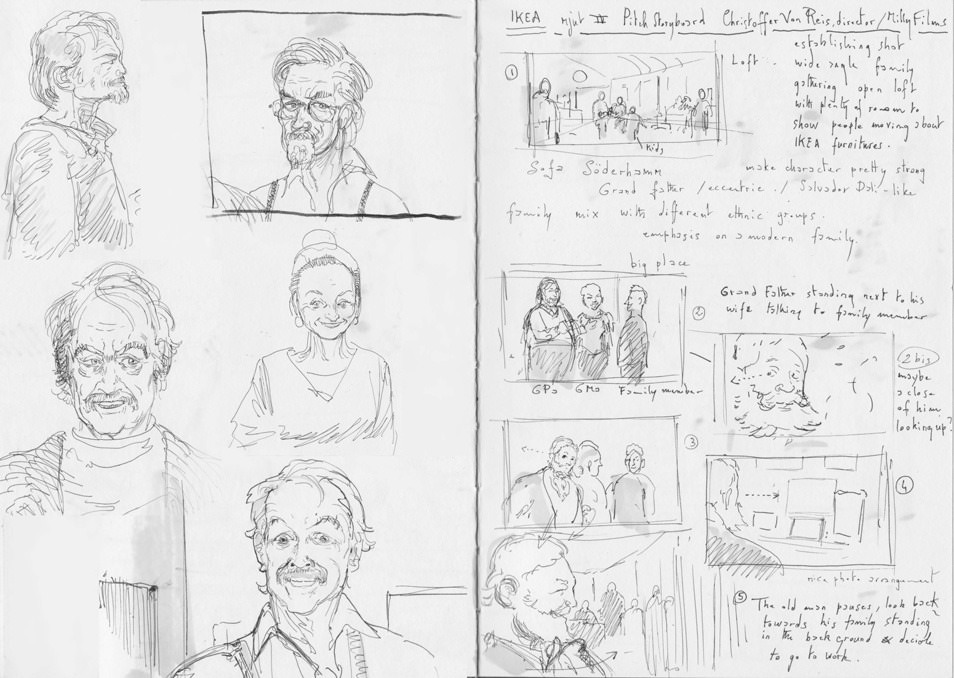 IKEA njut IV Pitch Storyboard Christoffer Von Reis, director / Milky Films
1
Loft.
establishing shot
wide angle family
gathering open loft
with plenty of room to
show people moving about
IKEA furnitures.
Kids
Sofa Söderhamm
make character pretty strong
Grand father / eccentric. / Salvador Dali-like
family mix with different ethnic groups.
emphasis on a modern family.
big place
2
Grand Father standing next to his
wife talking to family member
GPa GMa Family member
2 bis
maybe
a close
of him
looking up?
3
4
nice photo arrangement
5
The old man pauses, look back
towards his family standing
in the back ground & decide
to go to work.